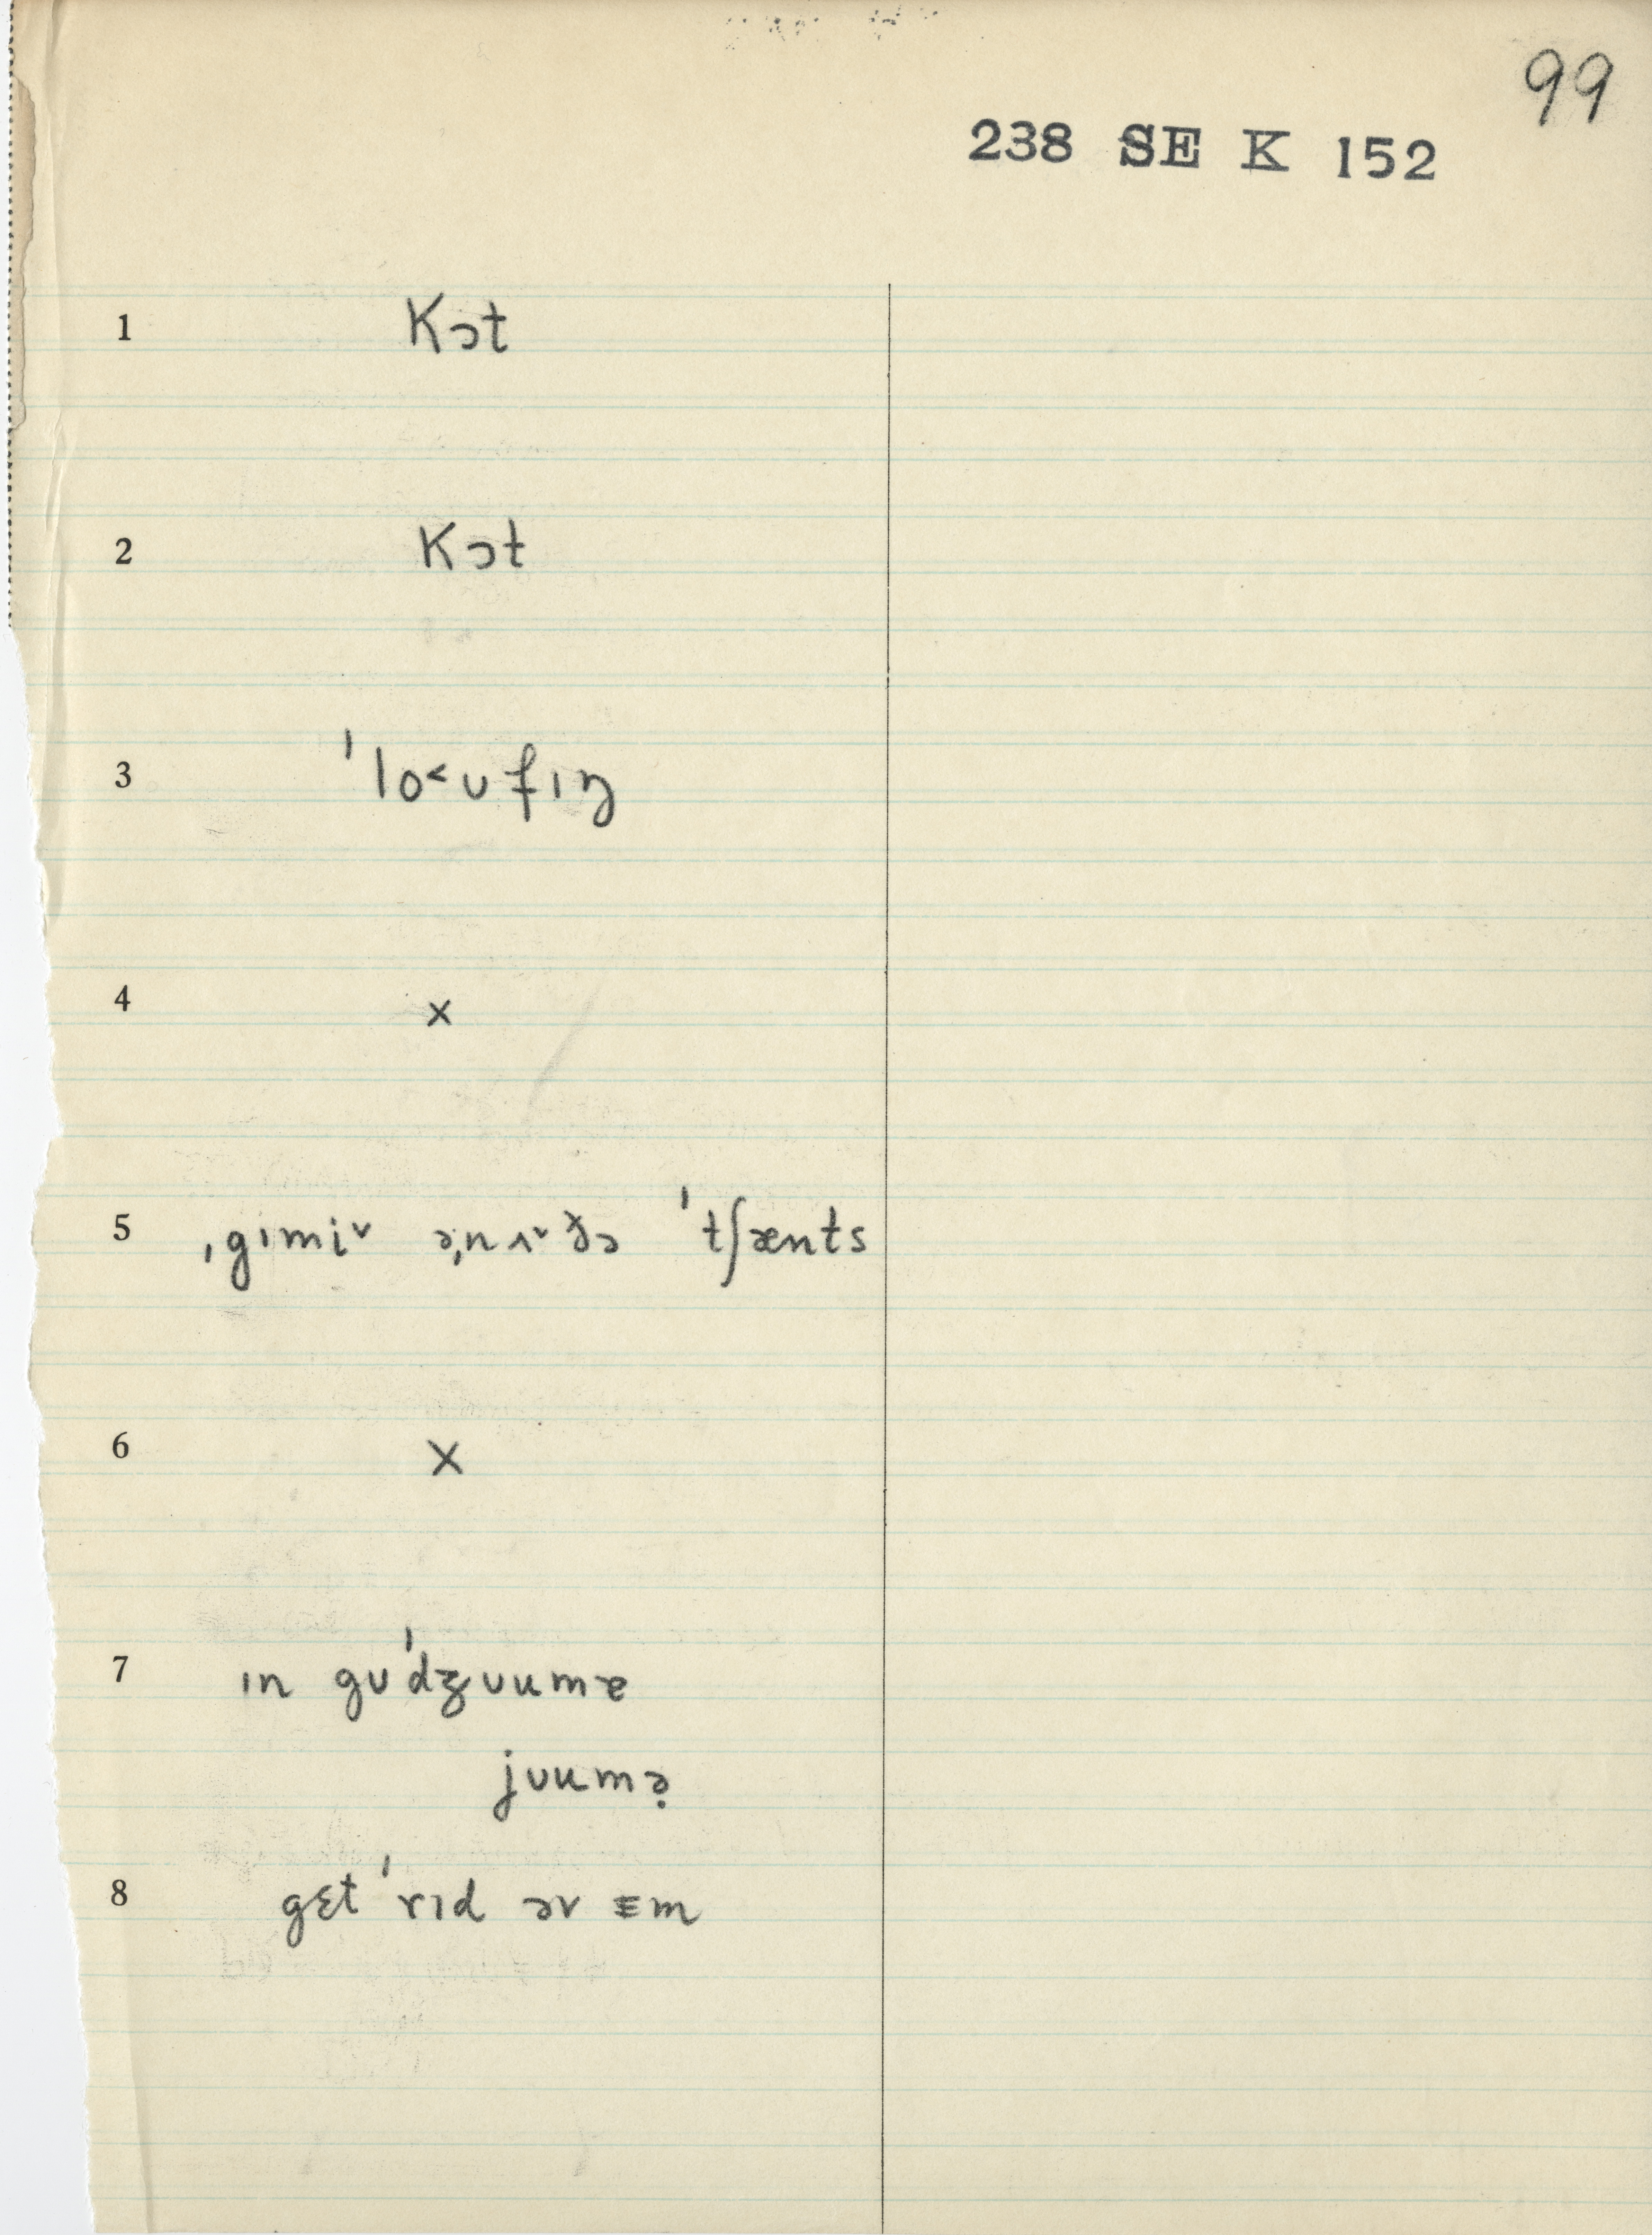 99
238 SE K 152
1 Kɔt
2 Kɔt
3 ˈlo˂ʊfɪŋ
4 x
5 ˌgɪmi˅ əˌnʌ˅ðə ˈtʃænts
6 x
7 ɪn gʊˈdʒʊumɚ
jʊumə̣
8 gɛt ˈrɪd əv ɛm